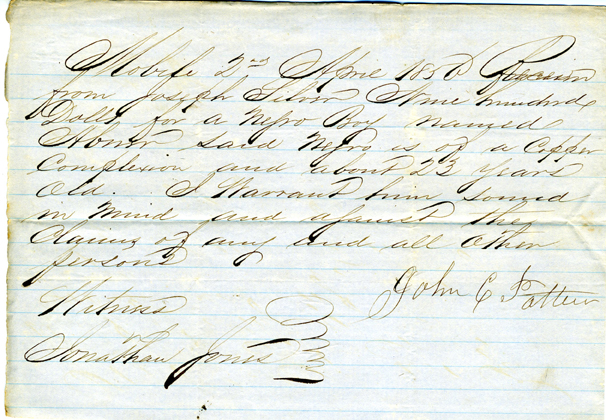 Mobile 2nd April 1850 Received
from Joseph Silver Nine Hundred
Dolls for a Negro Boy named
Abner said Negro is of a Copper
Complexion and about 23 years
Old. I Warrant him sound
in Mind and against the
Claims of any and all other
persons
John C Patten
Witness
Jonathan Jones